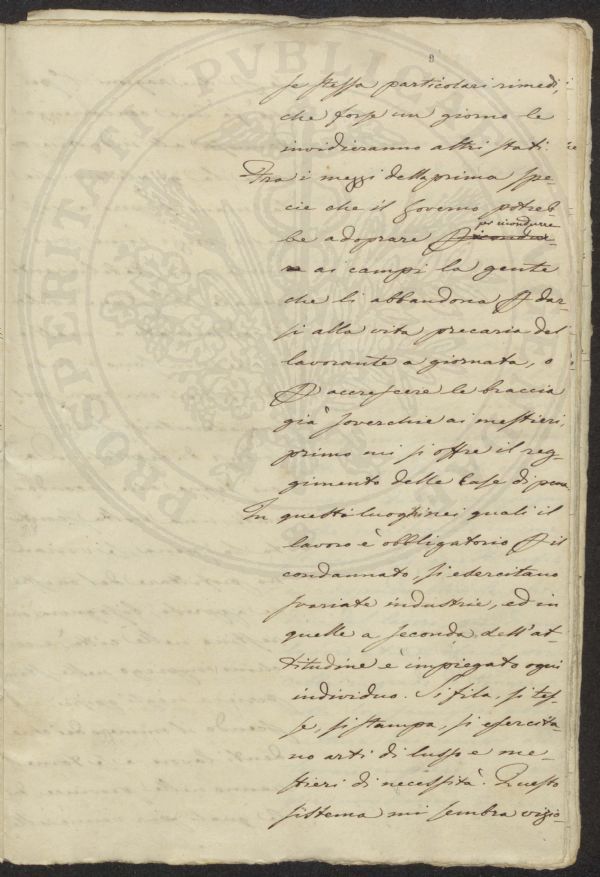 9
se stessa particolari rimedi,
che forse un giorno le
invidieranno altri stati.
Fra i mezzi della prima spe-
cie che il governo potreb-
per ricondurre
be adoprare
ai campi la gente
che li abbandona P dar-
si alla vita precaria del
lavorante a giornata, o
P accrescere le braccia
già soverchie ai mestieri,
primo mi si offre il reg-
gimento delle Case di pena
In questi luoghi nei quali il
lavoro è obbligatorio P il
condannato, si esercitano
svariate industrie, ed in
quelle a seconda dell'at-
titudine è impiegato ogni
individuo. Si fila, si tes-
se, si stampa, si esercita-
no arti di lusso e me-
stieri di necessità. Questo
sistema mi sembra vizio-
PROSPERITATI PVBLICAE